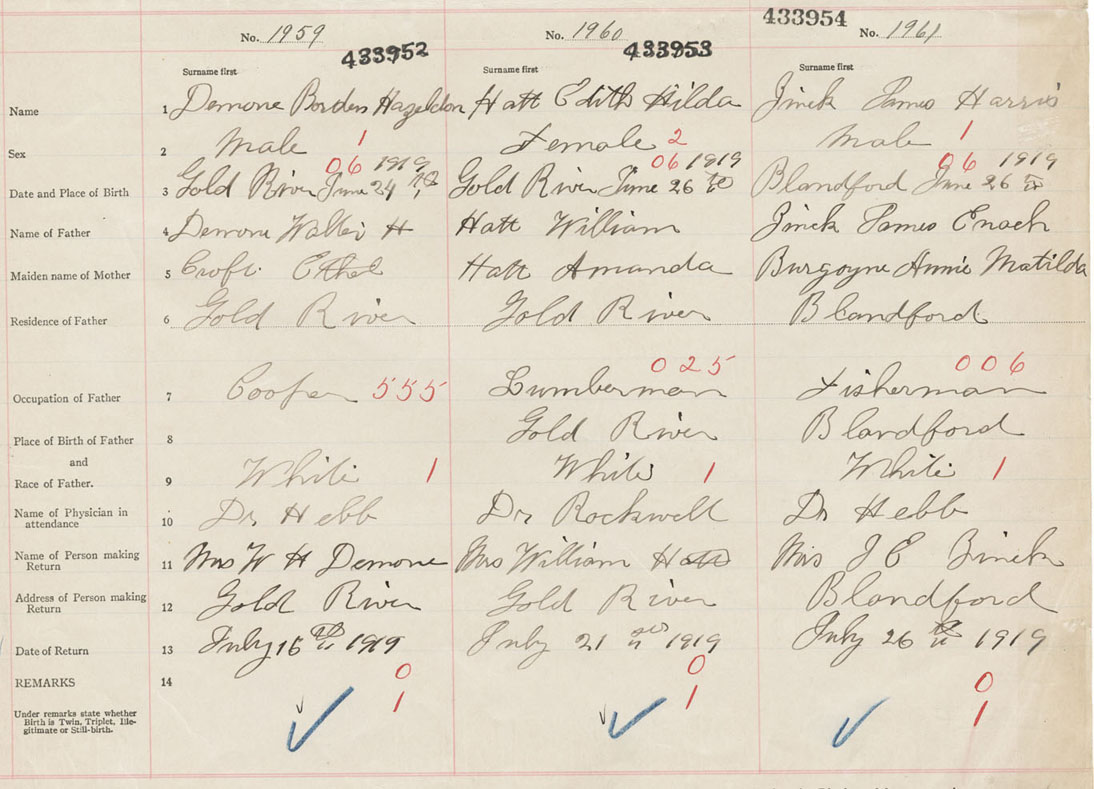 No. 1959 No. 1960 433954 No. 1961
433952 433953
Surname first Surname first Surname first
Name 1 Demone Borden Hazeldon Hatt Edith Hilda Zinck James Harris
Sex 2 Male 1 Female 2 Male 1
06 1919 06 1919 06 1919
Date and Place of Birth 3 Gold River June 24 th Gold River June 26 th Blandford June 26 th
Name of Father 4 Demone Walter H Hatt William Zinck James Enoch
Maiden name of Mother 5 Croft Ethel Hatt Amanda Burgoyne Annie Matilda
Residence of Father 6 Gold River Gold River Blandford
025 006
Occupation of Father 7 Cooper 555 Lumberman Fisherman
Place of Birth of Father 8 Gold River Blandford
and
Race of Father. 9 White 1 White 1 White 1
Name of Physician in
attendance 10 Dr Hebb Dr Rockwell Dr Hebb
Name of Person making
Return 11 Mrs W H Demone Mrs William Hatt Mrs J E Zinck
Address of Person making
Return 12 Gold River Gold River Blandford
Date of Return 13 July 15 th 1919 July 21 1919 July 26 th 1919
REMARKS 14 0 0 0
1 1 1
Under remarks state whether
Birth is Twin, Triplet, Ille-
gitimate or Still-birth.